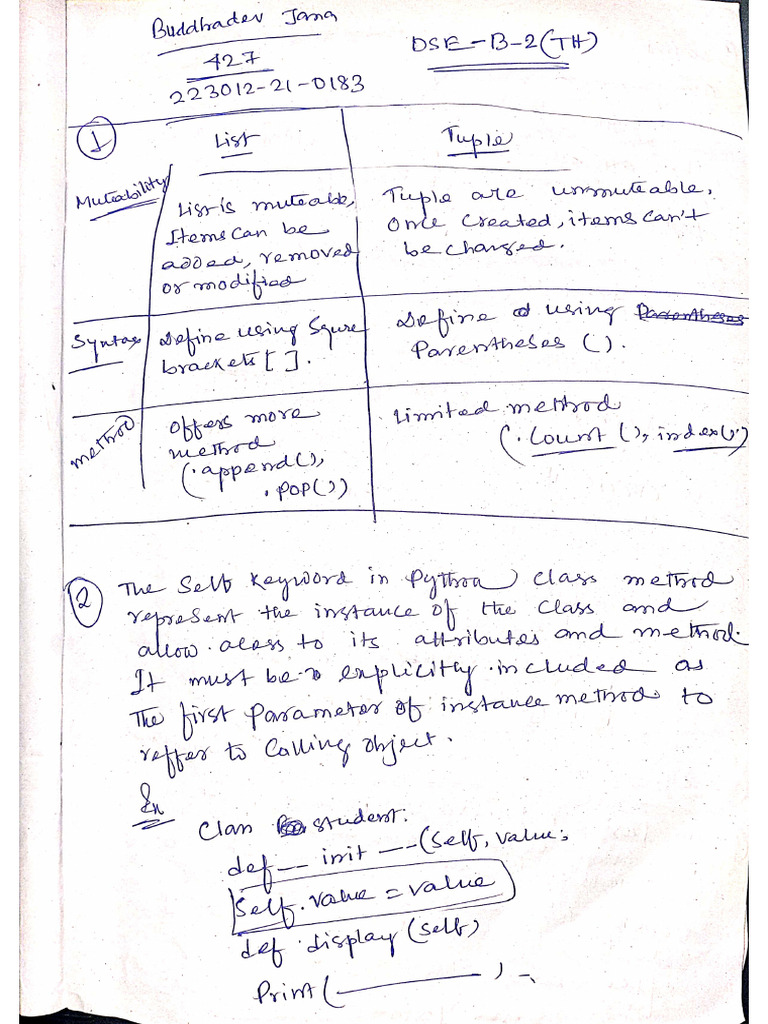 Buddhadev Jana
427
223012-21-0183
DSE-B-2(TH)
1
List
Tuple
Muteability
List is muteable,
Items can be
added, removed
or modified
Tuple are unmuteable,
Once created, items can't
be changed.
Syntax
Define using Squre
brackets [ ].
Define using
Parentheses ().
method
Offers more
method
(.append(),
.pop())
Limited method
(.count(), index())
2
The Self keyword in Python class method
represent the instance of the class and
allow acess to its attributes and method.
It must be explicitly included as
The first parameter of instance method to
reffer to calling object.
Ex
Class student:
def __ init __ (self, value:
self.value = value
def display (self)
Print( )